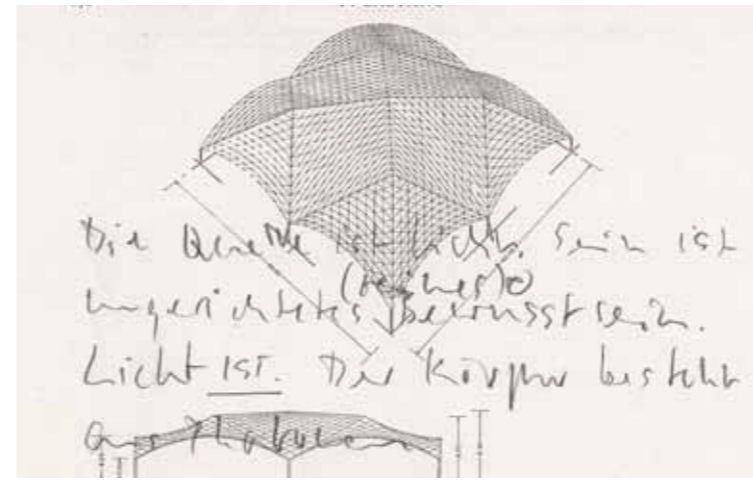 Die Quelle ist Licht. Sein ist
(reines)
ungerichtetes Bewusstsein.
Licht IST. Der Körper besteht
aus Photonen